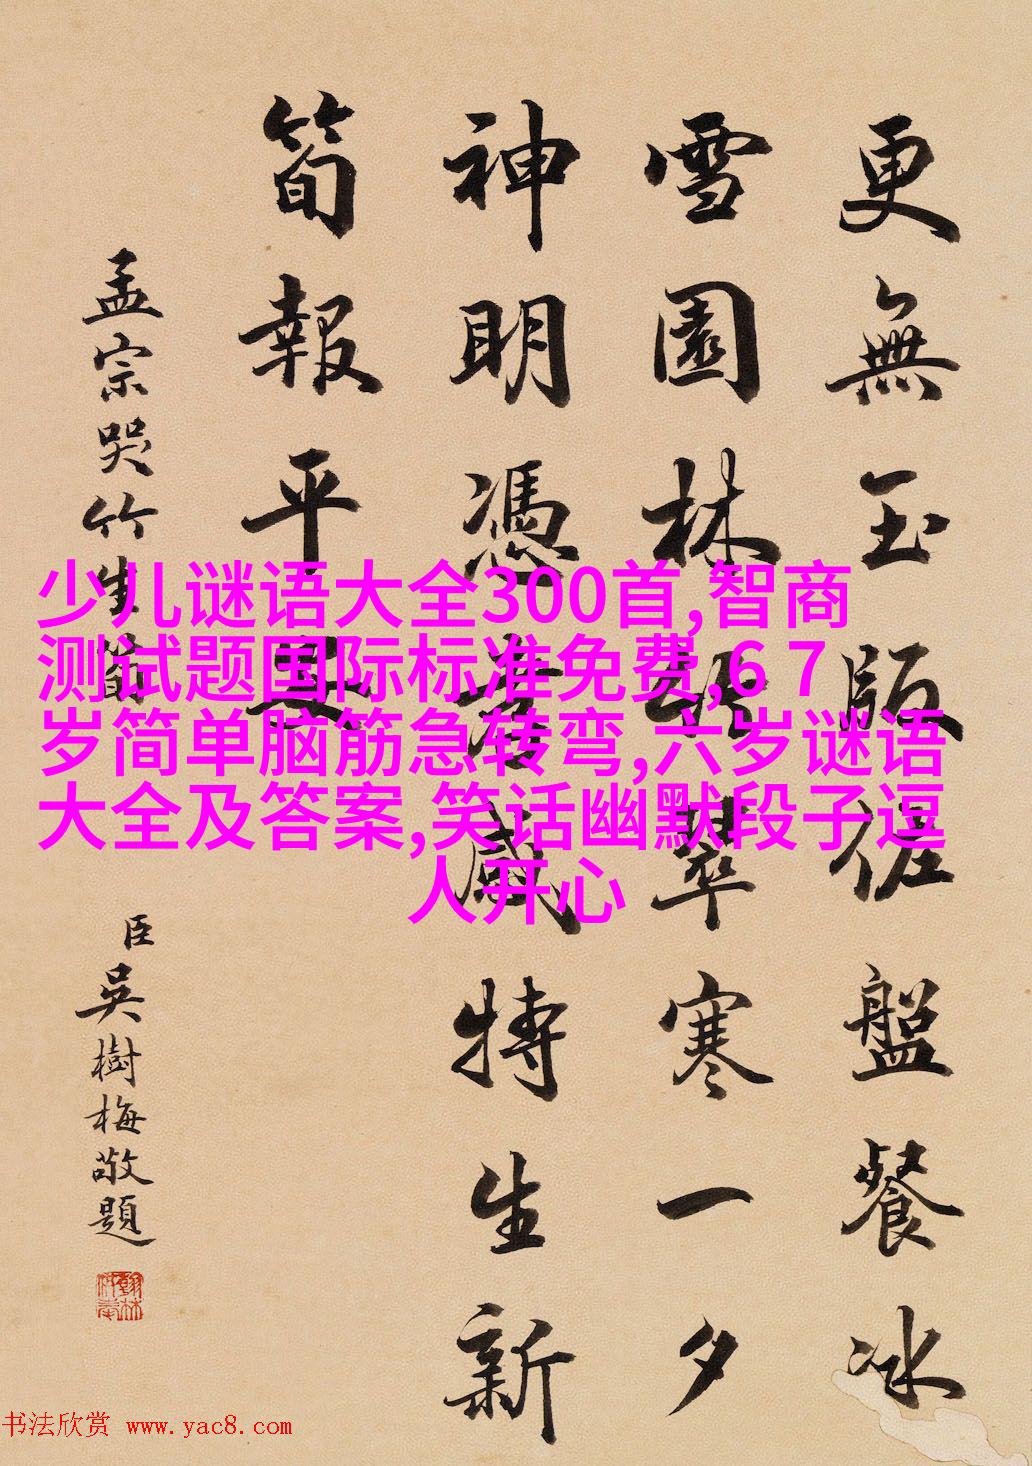 更無玉版佐盤餐冰
雪園林翠寒一夕
神明憑孝感特生新
筍報平安
孟宗哭竹生筍
臣吳樹梅敬題
少儿谜语大全300首,智商
测试题国际标准免费,6 7
岁简单脑筋急转弯,六岁谜语
大全及答案,笑话幽默段子逗
人开心
书法欣赏 www.yac8.com